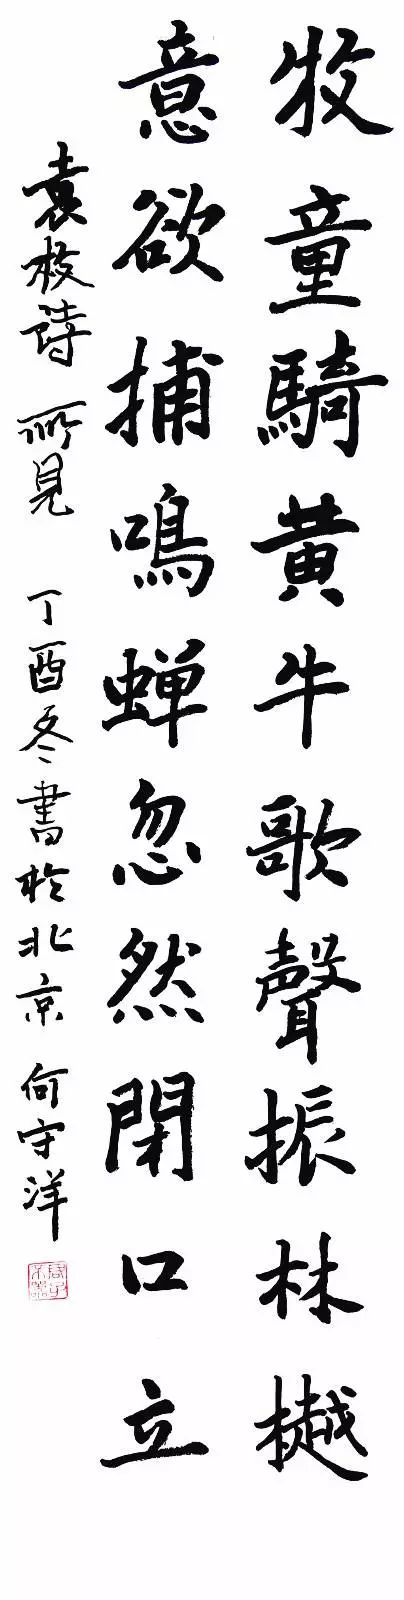 牧童騎黄牛歌聲振林樾
意欲捕鳴蝉忽然閉口立
袁枚詩 所見 丁酉冬書於北京 何守洋